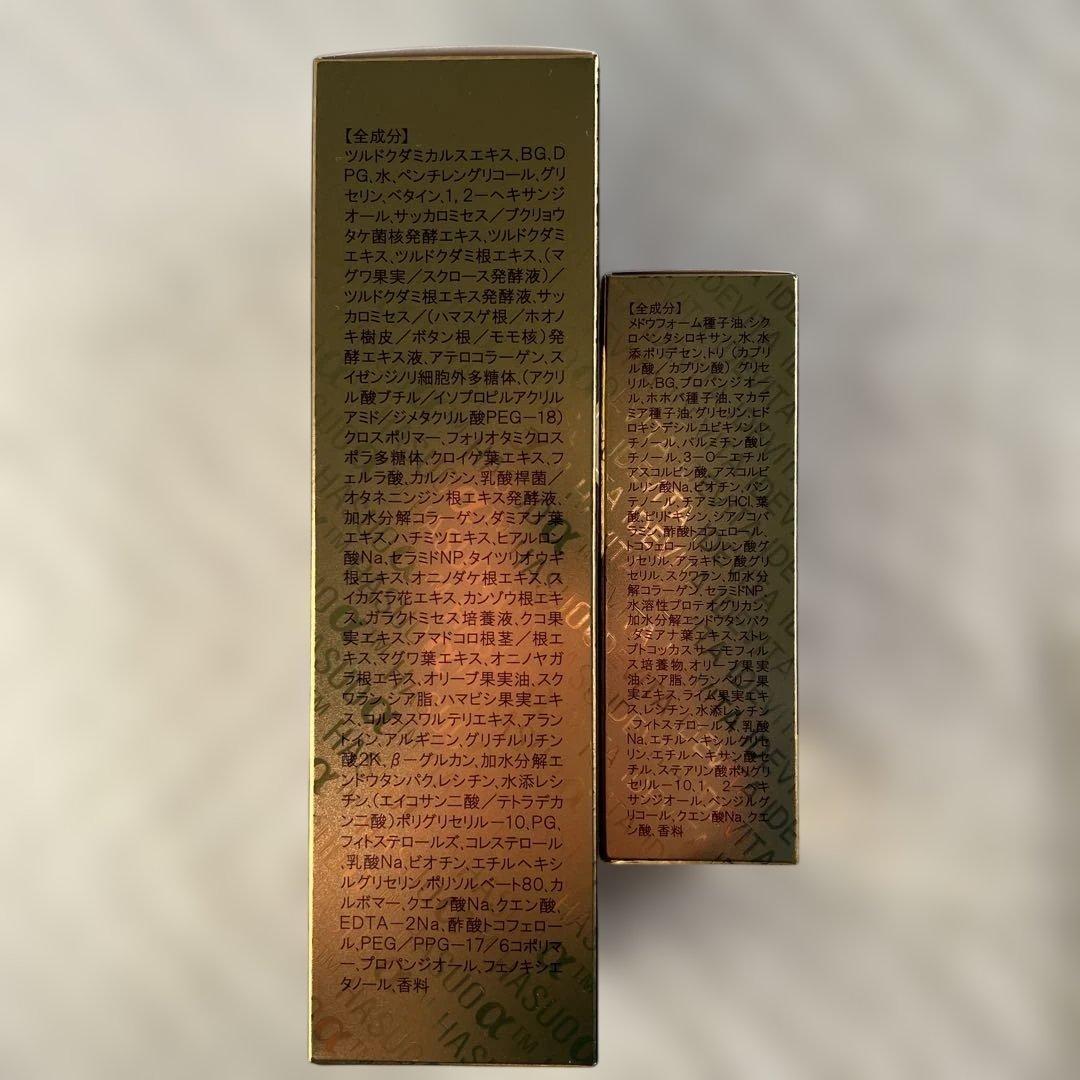 【全成分】
ツルドクダミカルスエキス、BG、D
PG、水、ペンチレングリコール、グリ
セリン、ベタイン、1,2－ヘキサンジ
オール、サッカロミセス／ブクリョウ
タケ菌核発酵エキス、ツルドクダミ
エキス、ツルドクダミ根エキス、(マ
グワ果実／スクロース発酵液)／
ツルドクダミ根エキス発酵液、サッ
カロミセス／(ハマスゲ根／ホオノ
キ樹皮／ボタン根／モモ核)発
酵エキス液、アテロコラーゲン、ス
イゼンジノリ細胞外多糖体、(アクリ
ル酸ブチル／イソプロピルアクリル
アミド／ジメタクリル酸PEG－18)
クロスポリマー、フォリオタミクロス
ポラ多糖体、クロイゲ葉エキス、フ
ェルラ酸、カルノシン、乳酸桿菌／
オタネニンジン根エキス発酵液、
加水分解コラーゲン、ダミアナ葉
エキス、ハチミツエキス、ヒアルロン
酸Na、セラミドNP、タイツリオウギ
根エキス、オニノダケ根エキス、ス
イカズラ花エキス、カンゾウ根エキ
ス、ガラクトミセス培養液、クコ果
実エキス、アマドコロ根茎／根エ
キス、マグワ葉エキス、オニノヤガ
ラ根エキス、オリーブ果実油、スク
ワラン、シア脂、ハマビシ果実エキ
ス、コルタスワルテリエキス、アラン
トイン、アルギニン、グリチルリチン
酸2K、β－グルカン、加水分解エ
ンドウタンパク、レシチン、水添レシ
チン、(エイコサン二酸／テトラデカ
ン二酸)ポリグリセリル－10、PG、
フィトステロールズ、コレステロール
、乳酸Na、ビオチン、エチルヘキシ
ルグリセリン、ポリソルベート80、カ
ルボマー、クエン酸Na、クエン酸、
EDTA－2Na、酢酸トコフェロー
ル、PEG／PPG－17／6コポリマ
ー、プロパンジオール、フェノキシエ
タノール、香料
【全成分】
メドウフォーム種子油、シク
ロペンタシロキサン、水、水
添ポリデセン、トリ(カプリ
ル酸／カプリン酸)グリセ
リル、BG、プロパンジオー
ル、ホホバ種子油、マカデ
ミア種子油、グリセリン、ヒド
ロキシデシルユビキノン、レ
チノール、パルミチン酸レ
チノール、3－O－エチル
アスコルビン酸、アスコルビ
ルリン酸Na、ビオチン、パン
テノール、チアミンHCl、葉
酸、ピリドキシン、シアノコバ
ラミン、酢酸トコフェロール、
トコフェロール、リノレン酸グ
リセリル、アラキドン酸グリ
セリル、スクワラン、加水分
解コラーゲン、セラミドNP、
水溶性プロテオグリカン、
加水分解エンドウタンパク、
ダミアナ葉エキス、ストレ
プトコッカスサーモフィル
ス培養物、オリーブ果実
油、シア脂、クランベリー果
実エキス、ライム果実エキ
ス、レシチン、水添レシチン
、フィトステロールズ、乳酸
Na、エチルヘキシルグリセ
リン、エチルヘキサン酸セ
チル、ステアリン酸ポリグリ
セリル－10、1,2－ヘキ
サンジオール、ベンジルグ
リコール、クエン酸Na、クエ
ン酸、香料
HASUO α™
HASUO
LA IDEVITA